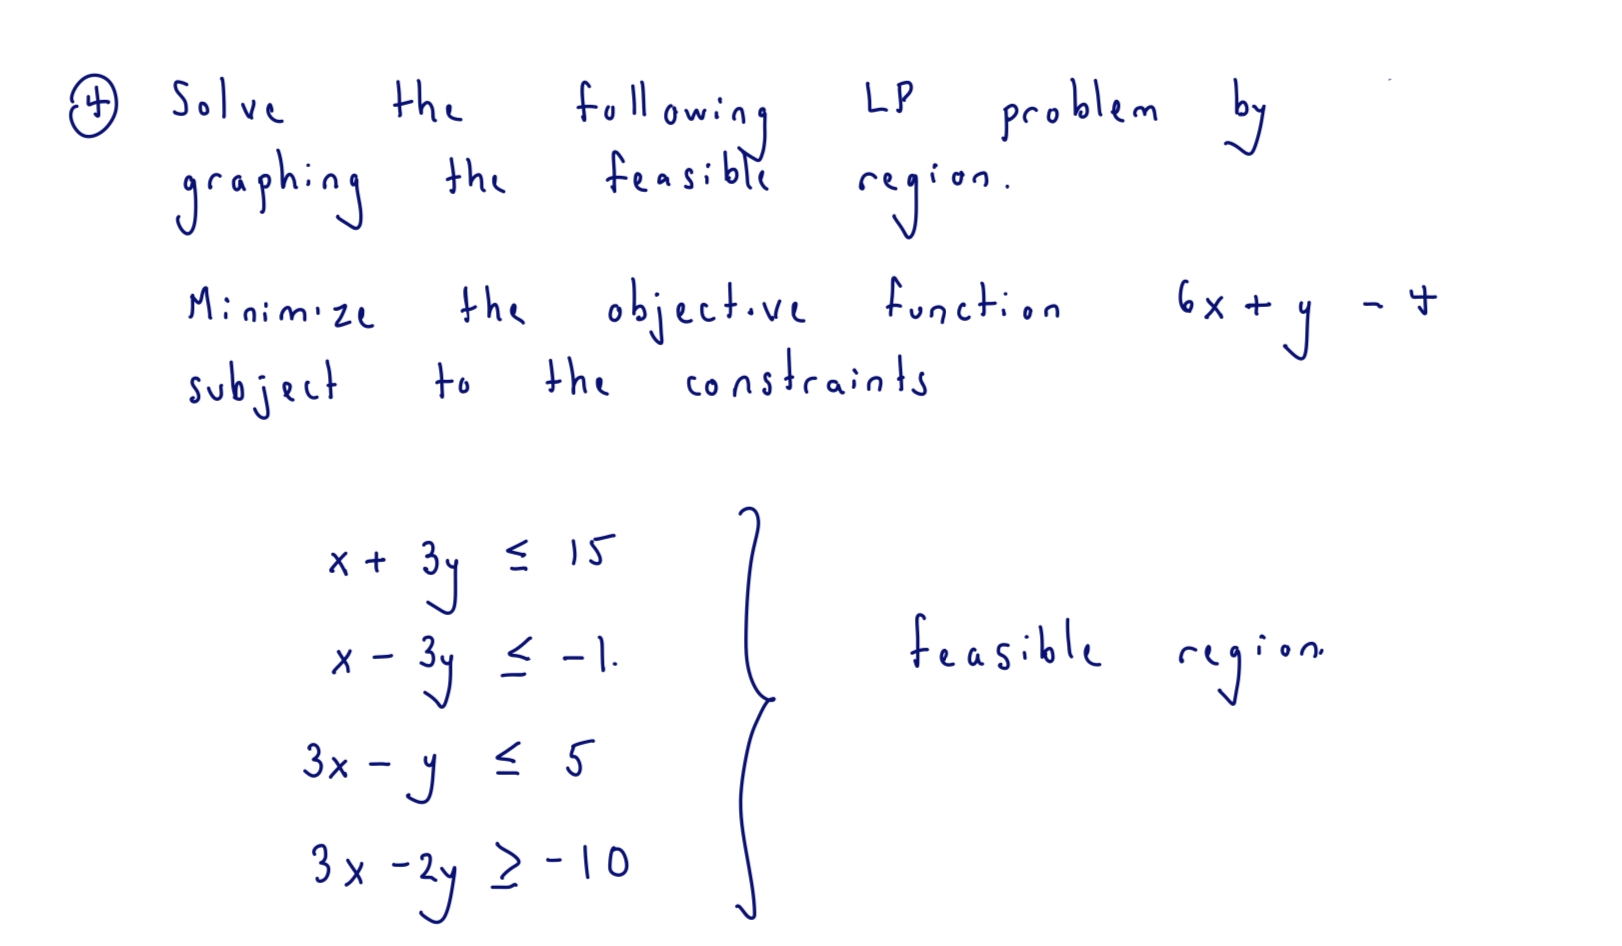 ④ Solve the following LP problem by
graphing the feasible region.
Minimize the objective function 6x + y - 4
subject to the constraints
x + 3y ≤ 15
x - 3y ≤ -1.
feasible region.
3x - y ≤ 5
3x - 2y ≥ -10